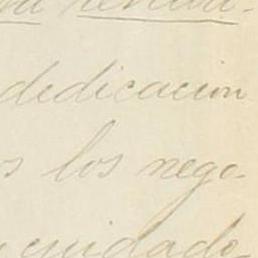 dedicacion
s los nego-
cuidado